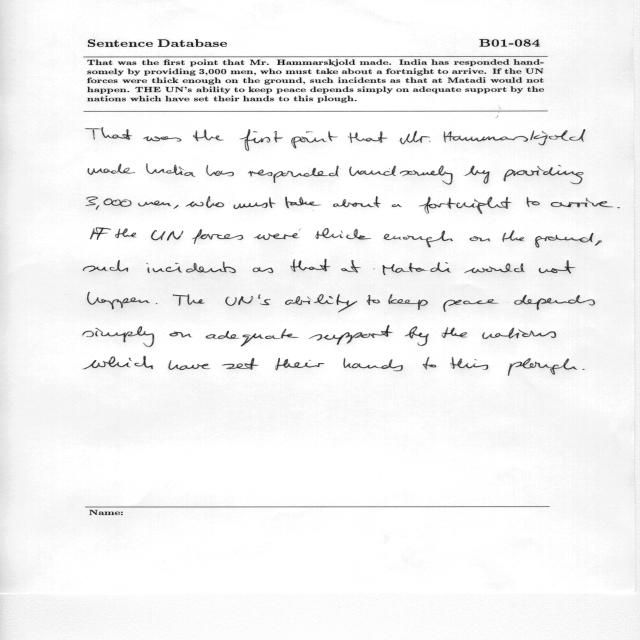 Sentence Database B01-084
That was the first point that Mr. Hammarskjold made. India has responded hand-
somely by providing 3,000 men, who must take about a fortnight to arrive. If the UN
forces were thick enough on the ground, such incidents as that at Matadi would not
happen. THE UN's ability to keep peace depends simply on adequate support by the
nations which have set their hands to this plough.
That was the first point that Mr. Hammarskjold
made India has responded handsomely by providing
3,000 men, who must take about a fortnight to arrive.
If the UN forces were thick enough on the ground,
such incidents as that at Matadi would not
happen. The UN's ability to keep peace depends
simply on adequate support by the nations
which have set their hands to this plough.
Name: